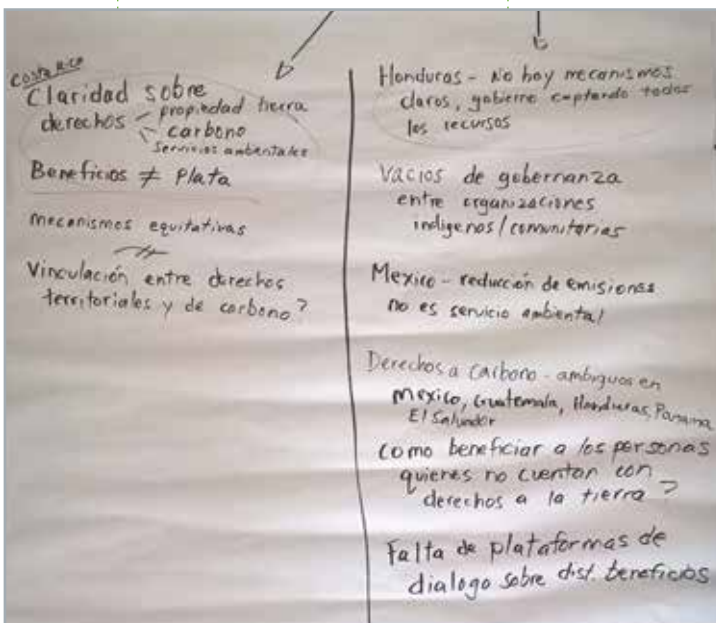 Costa Rica
Claridad sobre
derechos - propiedad tierra
- carbono
servicios ambientales
Beneficios ≠ Plata
mecanismos equitativas
Vinculación entre derechos
territoriales y de carbono?
Honduras - No hay mecanismos
claros, gobierno captando todos
los recursos
Vacios de gobernanza
entre organizaciones
indigenas/comunitarias
Mexico - reducción de emisiones
no es servicio ambiental
Derechos a carbono - ambiguos en
Mexico, Guatemala, Honduras, Panama
El Salvador
Como beneficiar a las personas
quienes no cuentan con
derechos a la tierra?
Falta de plataformas de
dialogo sobre dist. beneficios